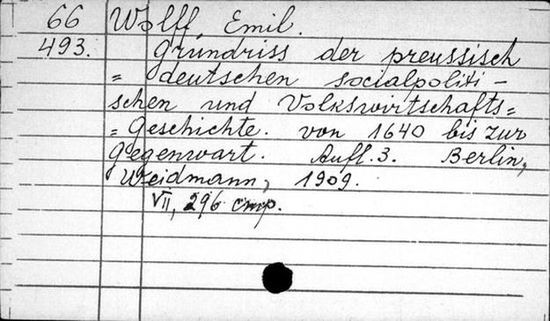 66 Wolff Emil.
493. Grundriss der preussisch
= deutschen socialpoliti-
schen und Volkswirtschafts=
= Geschichte. von 1640 bis zur
Gegenwart. Aufl. 3. Berlin,
Weidmann, 1909.
VII, 296 стр.